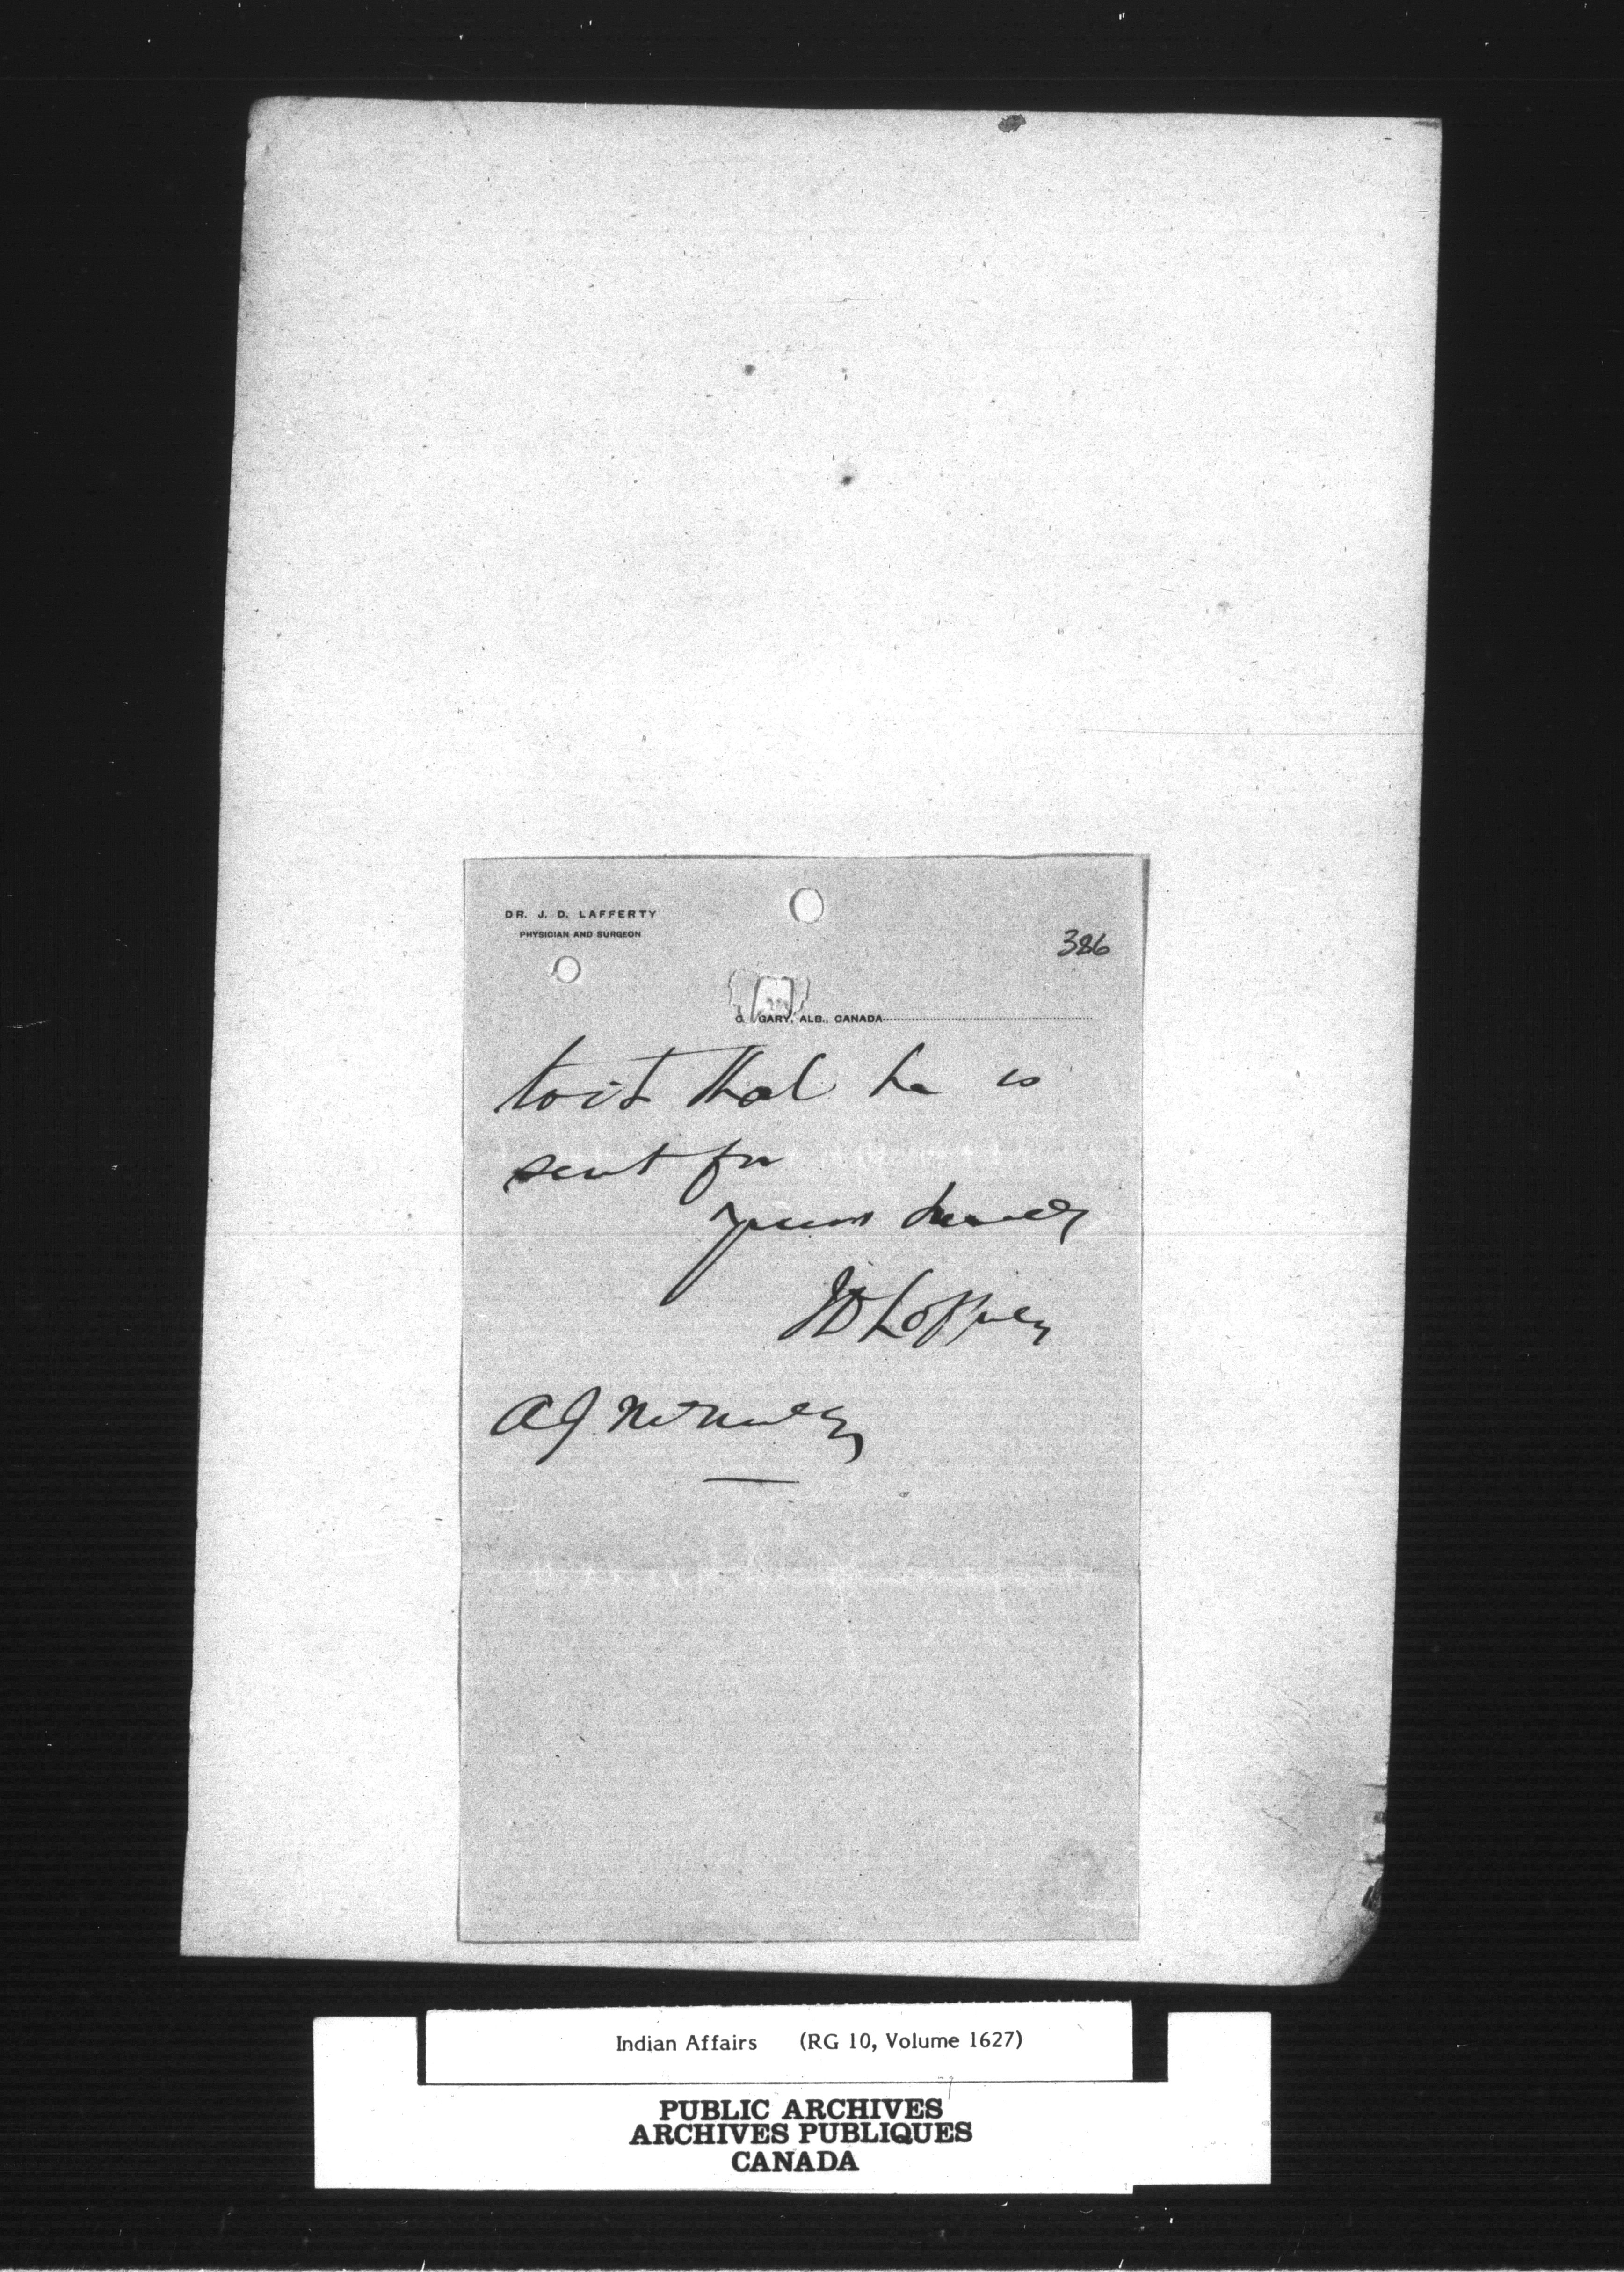 DR. J. D. LAFFERTY
PHYSICIAN AND SURGEON
386
C GARY, ALB., CANADA
to it that he is
sent for
Yours truly
JD Lafferty
A J McNeill
Indian Affairs (RG 10, Volume 1627)
PUBLIC ARCHIVES
ARCHIVES PUBLIQUES
CANADA